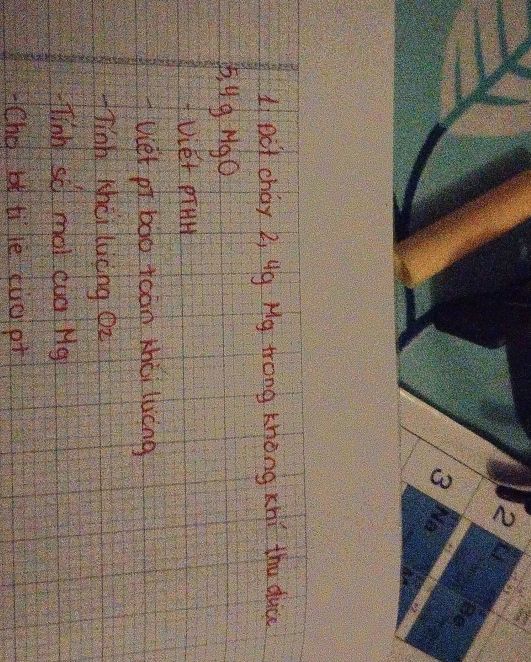 1 Đốt cháy 2,4g Mg trong không khí thu được
5,4g MgO
- Viết PTHH
- Viết PT bảo toàn khối lượng
- Tính khối lượng O2
- Tính số mol của Mg
- Cho bt tỉ lệ của pt
2
3
Li
Be
Na